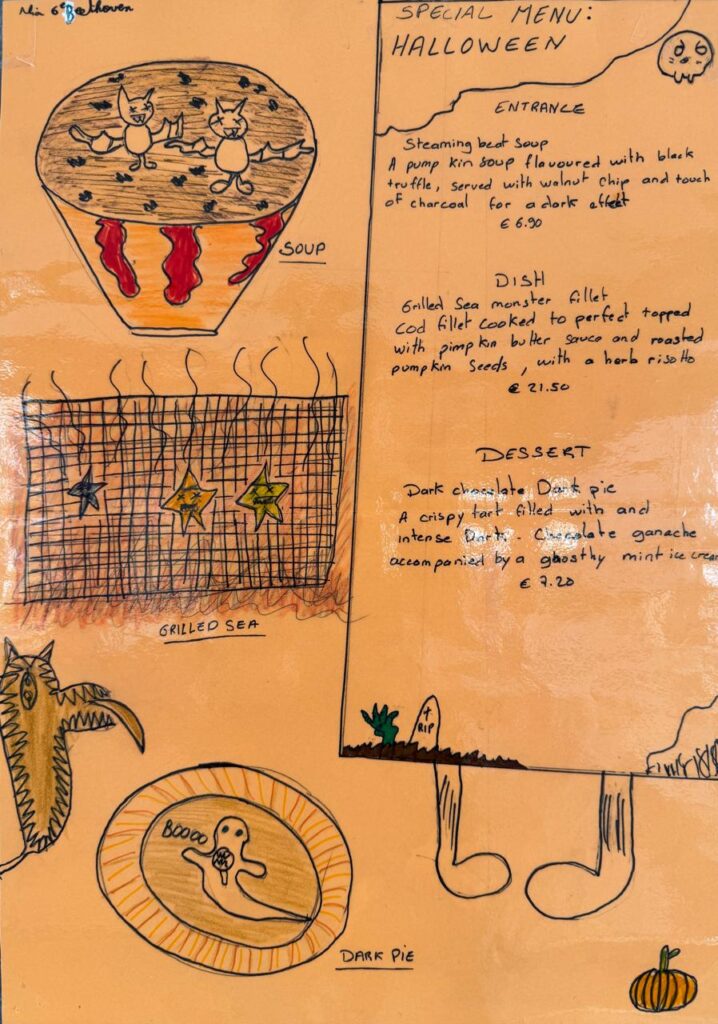 6e Beethoven
SPECIAL MENU:
HALLOWEEN
ENTRANCE
Steaming beat soup
A pump kin soup flavoured with black
truffle, served with walnut chip and touch
of charcoal for a dark effekt
€ 6.90
DISH
Grilled Sea monster fillet
Cod fillet cooked to perfect topped
with pimpkin butter sauce and roasted
pumpkin seeds, with a herb risotto
€ 21.50
DESSERT
Dark chocolate Dark pie
A crispy tart filled with and
intense Dark. Chocolate ganache
accompanied by a ghosthy mint ice cream
€ 7.20
SOUP
GRILLED SEA
RIP
BOOOO
DARK PIE